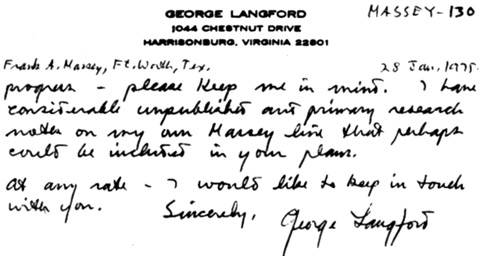 GEORGE LANGFORD
MASSEY-130
1044 CHESTNUT DRIVE
HARRISONBURG, VIRGINIA 22801
Frank A. Massey, Ft. Worth, Tex.
28 Jan. 1975.
progress - please keep me in mind. I have
considerable unpublished and primary research
notes on my own Massey line that perhaps
could be included in your plans.
At any rate - I would like to keep in touch
with you.
Sincerely,
George Langford